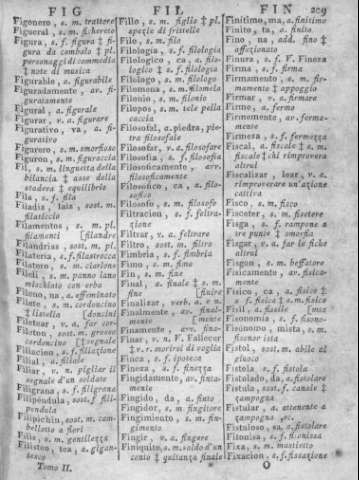 FIG
FIL
FIN
209
Figonero, s. m. trattore
Figueral, s. m. ficherete
Figura, s. f. figura ‡ fi-
gura da cembalo ‡ pl.
personaggi di commedia
‡ note di musica
Figurable, a. figurabile
Figuradamente, av. fi-
guratamente
Figural, a. figurale
Figurar, v. a. figurare
Figurativo, va, a. fi-
gurasivo
Figurero, s. m. smorfioso
Figuron, s. m. figuraccia
Fil, s. m. linguetta della
bilancia ‡ asse della
stadera ‡ equilibrio
Fila, s. f. fila
Filadis, sost. m.
filaticcio
Filamentos, s. m. pl.
filamenti [filandre
Filandrias, sost. m. pl.
Filateria, s. f. filastrocca
Filatero, s. m. ciarlone
Fileli, s. m. panno lano
mischiato con erba
Fileno, na, a. effeminato
Filete, s. m. cordoncino
‡ listello [doncini
Filetear, v. a. far cor-
Fileton, sost. m. grosso
cordoncino [‡ segnale
Filiacion, s. f. filiazione
Filial, a. filiale
Filiar, v. n. pigliar il
segnale d'un soldato
Filigrana, s. f. filigrana
Filipendula, sost. f. fili-
pendula
Filipichin, sost. m. cam-
bellotto a fiori
Filis, s. m. gentilezza
Filisteo, tea, a. gigan-
tesco
Tomo II.
Fillo, s. m. figlio ‡ pl.
spezie di frittelle
Filo, s. m. filo
Filologia, s. f. filologia
Filologico, ca, a. filo-
logico ‡ s. f. filologia
Filologo, s. m. filologo
Filomena, s. m. filomela
Filonio, s. m. filonio
Filopos, s. m. tele pella
caccia
Filosofal, a. piedra, pie-
tra filosofale
Filosofar, v. a. filosofare
Filosofia, s. f. filosofia
Filosoficamente, avv.
filosoficamente
Filosofico, ca, a. filo-
sofico
Filosofo, s. m. filosofo
Filtracion, s. f. feltra-
zione
Filtrar, v. a. feltrare
Filtro, sost. m. filtro
Fimbria, s. f. fimbria
Fimo, s. m. fimo
Fin, s. m. fine
Final, a. finale ‡ s. m.
fine [finire
Finalizar, verb. a. e n.
Finalmente, av. final-
mente [mente
Finamente, avv. fina-
Finar, v. n. V. Fallecer
‡ v. r. morirsi di voglia
Finca, s. f. ipoteca
Fineza, s. f. finezza
Fingidamente, av. finta-
mente
Fingido, da, a. finto
Fingidor, s. m. fingitore
Fingimiento, s. m. fin-
gimento
Fingir, v. a. fingere
Finiquito, s. m. saldo d'un
conto ‡ quitanza finale
Finitimo, ma, a. finitimo
Finito, ta, a. finito
Fino, na, add. fino ‡
affezionato
Finura, s. f. V. Fineza
Firma, s. f. firma
Firmamento, s. m. fir-
mamento ‡ appoggio
Firmar, v. a. firmare
Firme, a. fermo
Firmemente, av. ferma-
mente
Firmeza, s. f. fermezza
Fiscal, a. fiscale ‡ s. m.
fiscale ‡ chi rimprovera
altrui
Fiscalizar, v. a.
rimproverare un'azione
cattiva
Fisco, s. m. fisco
Fisceter, s. m. fisetere
Fisga, s. f. rampone a
tre punte ‡ smorfia
Fisgar, v. a. far le fiche
altrui
Fisgon, s. m. beffatore
Fisicamente, av. fisica-
mente
Fisico, ca, a. fisico ‡
s. f. fisica ‡ s. m. fisico
Fisonomia, s. f. fisono-
Fisonomo, mista, s. m.
fisonomista
Fistol, sost. m. abile al
giuoco
Fistola, s. f. fistola
Fistolado, da, a. fistolato
Fistula, sost. f. canale ‡
zampogna
Fistular, a. attenente a
zampogna ec.
Fistuloso, sa, a. fistoloso
Fitonisa, s. f. fitonissa
Fixa, s. m. mastietto
Fixacion, s. f. fissazione
O